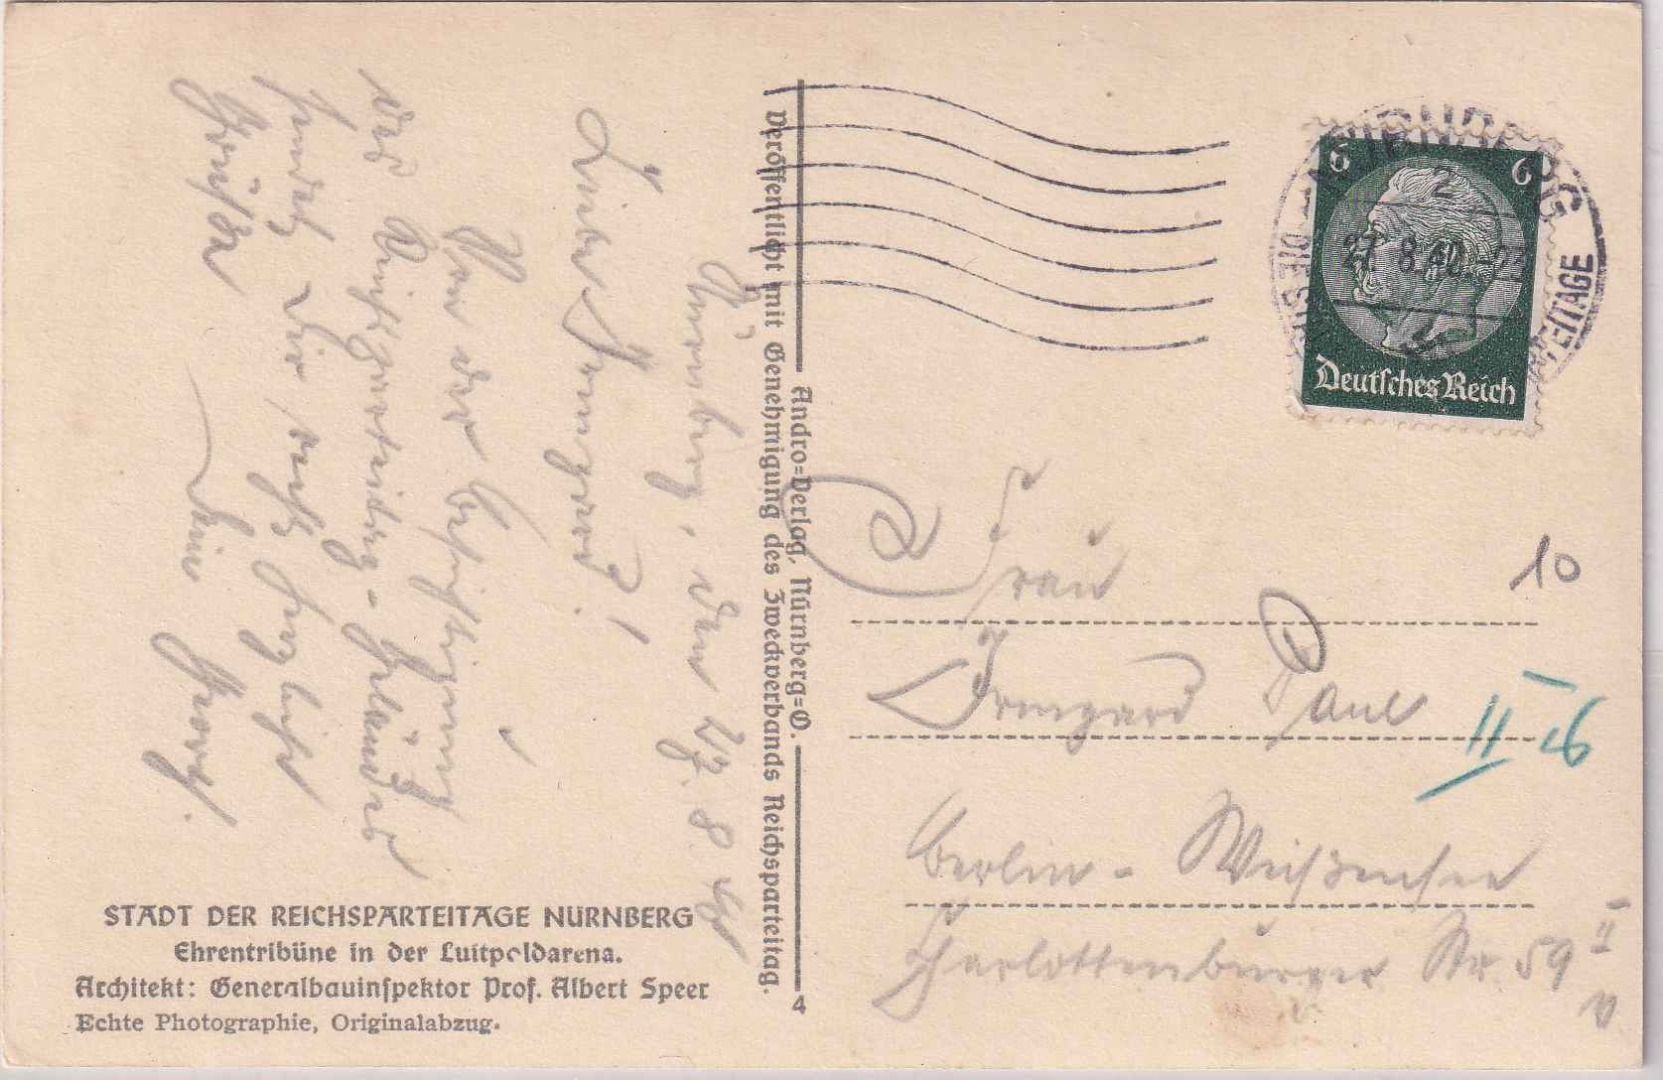 Nürnberg, den 27. 8. 40
Liebes Irmgard!
Von der Besichtigung
des Reichsparteitag-Geländes
sendet Dir recht herzliche
Grüße
Dein Georg.
STADT DER REICHSPARTEITAGE NÜRNBERG
Ehrentribüne in der Luitpoldarena.
Architekt: Generalbauinspektor Prof. Albert Speer
Echte Photographie, Originalabzug.
Andro=Verlag, Nürnberg=O.
Veröffentlicht mit Genehmigung des Zweckverbands Reichsparteitag.
4
NÜRNBERG
2
27.8.40.-23
6 6
Deutsches Reich
10
Frau
Irmgard Paul
II 26
Berlin - Weißensee
Charlottenburger Str. 59 II
v